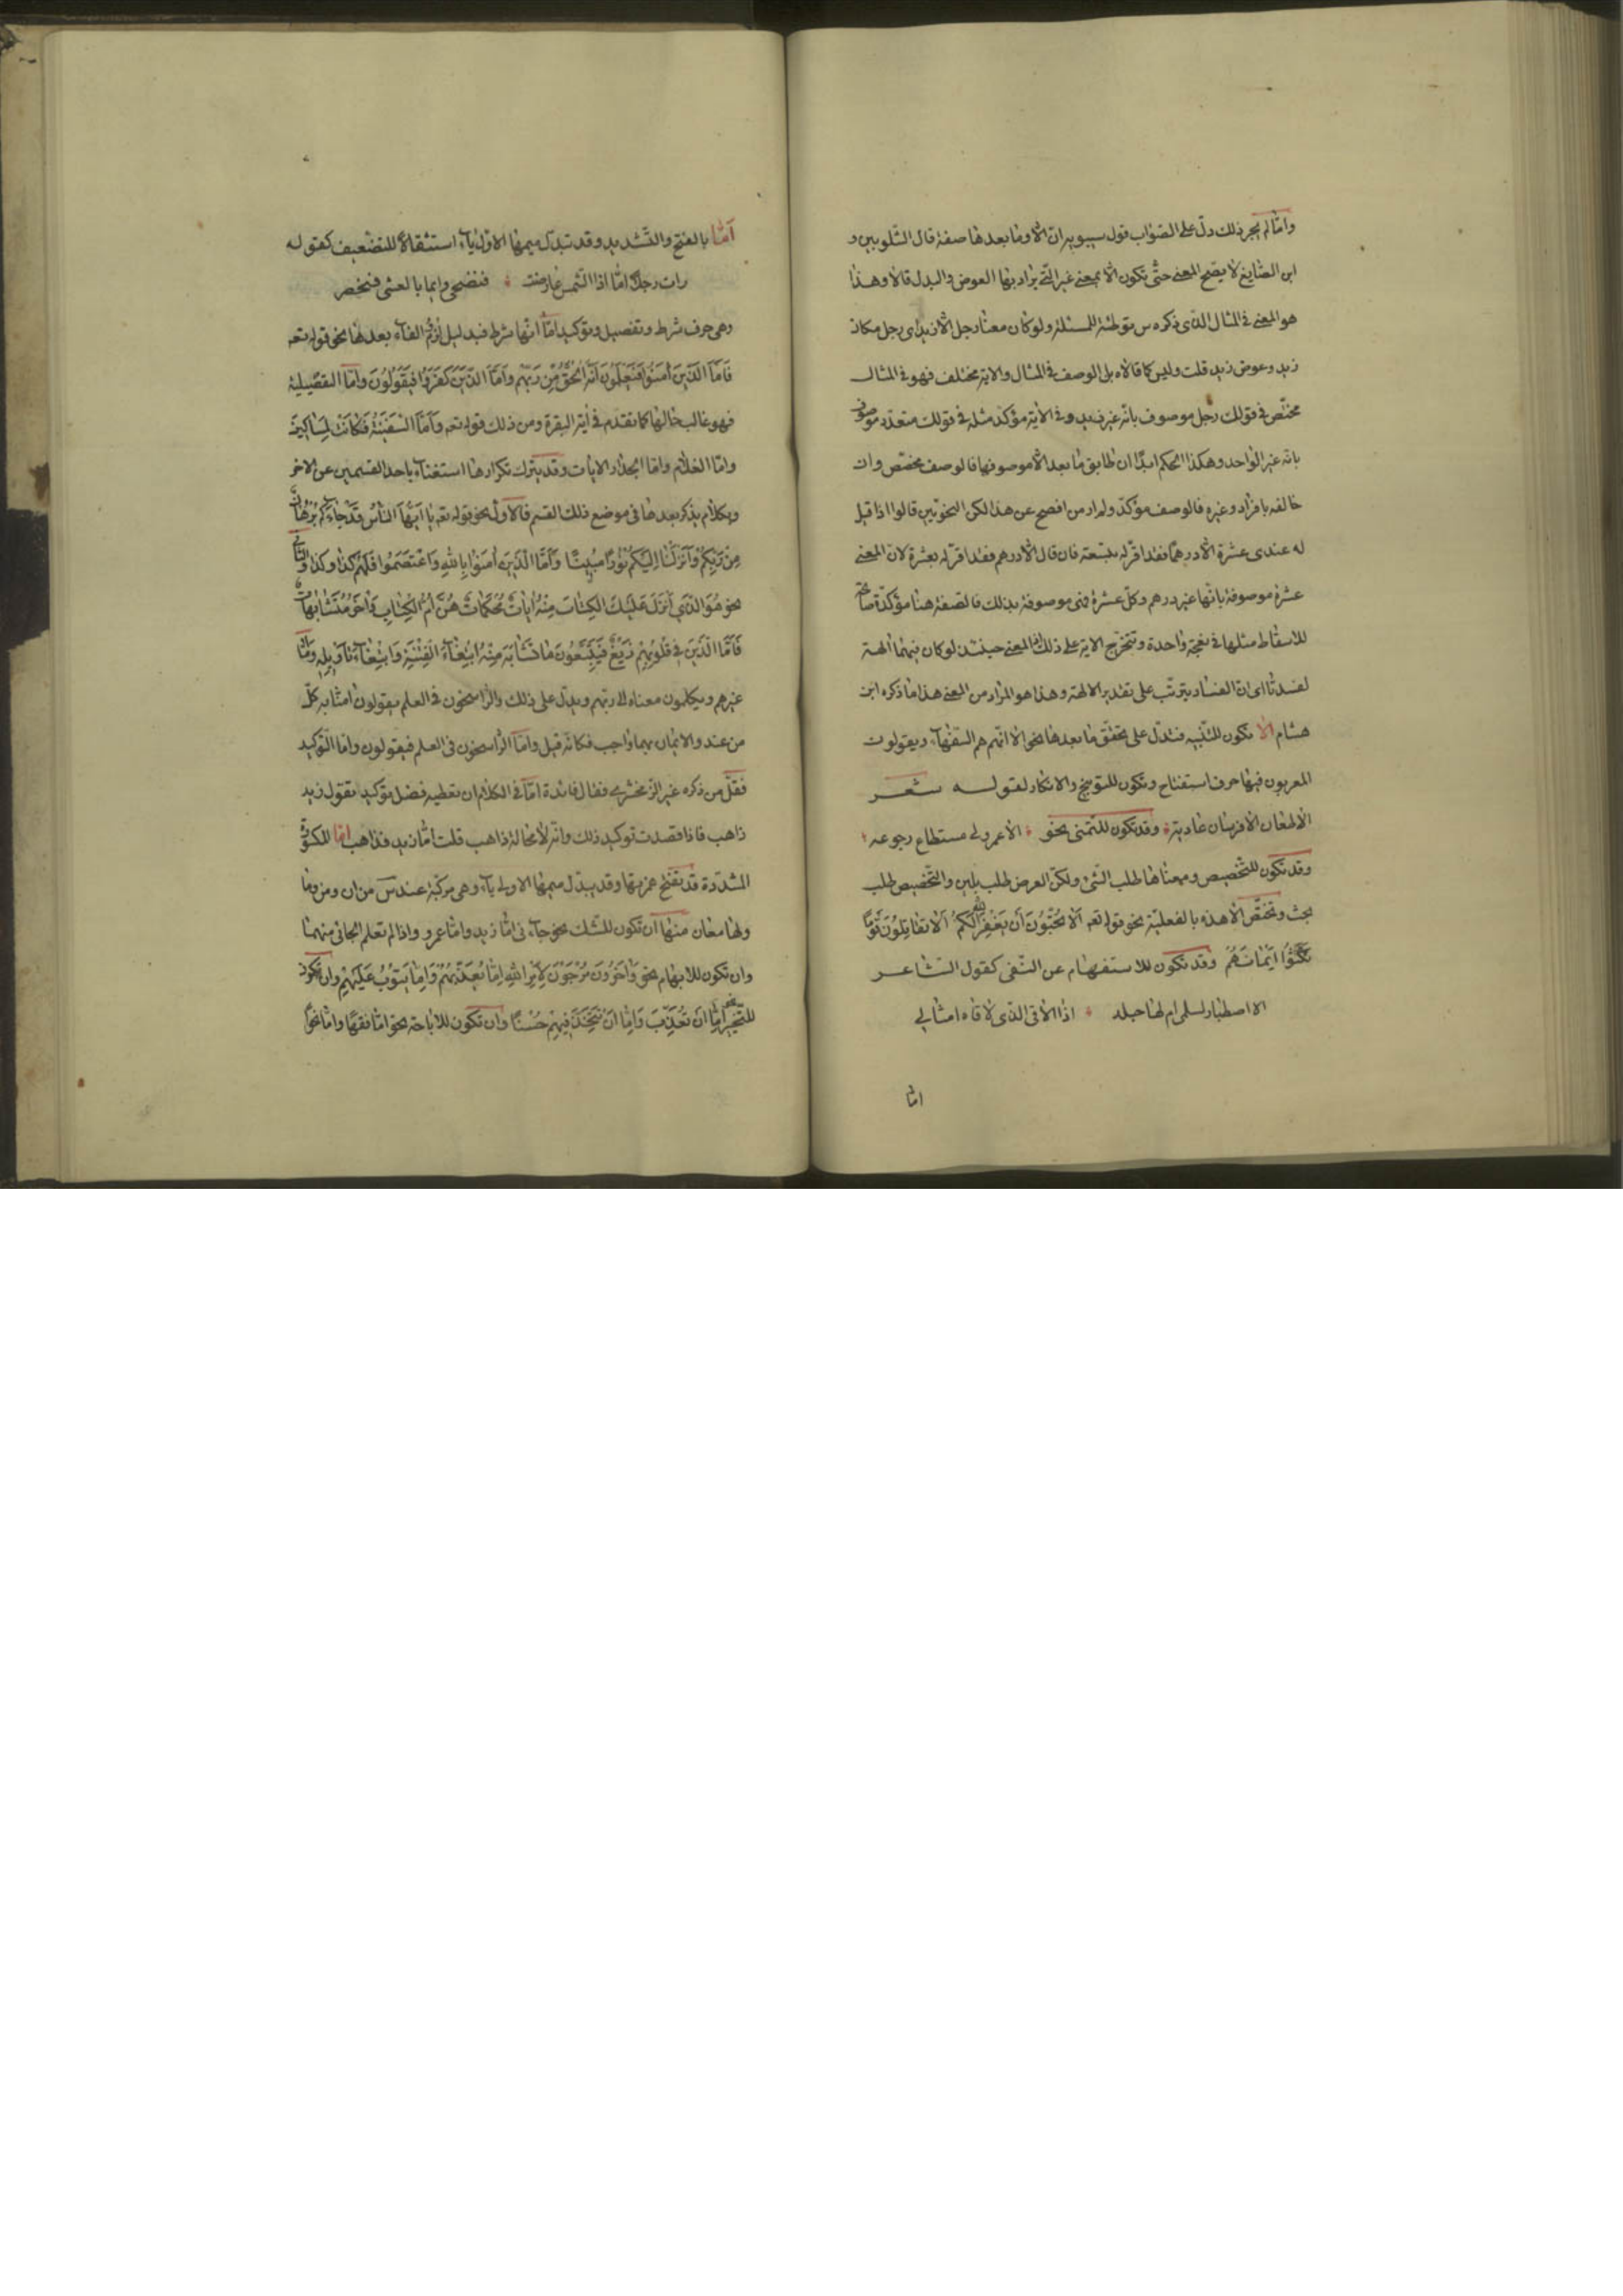 وامّا لم يجر ذلك دلّ على الصّواب قول سيبويه ان الّا وما بعدها صفة قال الشّلوبين و
ابن الضّايع لا يصّح المعنى حتّى تكون الّا بمعنى غير الّتى يراد بها العوض والبدل قالا وهذا
هو المعنى فى المثال الذّى ذكره س توطئة للمسئلة ولو كان معنا رجل الّا زيد اى رجل مكان
زيد وعوض زيد قلت وليس كما قالاه بل الوصف فى المثال والاية مختلف فهو فى المثال
مخصّص فى قولك رجل موصوف بانّه غير زيد وفى الاية مؤكّد مثله فى قولك متعدّد موصوف
بانّه غير الواحد وهكذا الحكم ابدًا ان طابق ما بعد الّا موصوفها فالوصف مخصّص وان
خالفه بافراد وغيره فالوصف مؤكّد ولم ار من افصح عن هذا لكن النحويّين قالوا اذا قيل
له عندى عشرة الّا درهمًا فقد اقرّ له بتسعة فان قال الّا درهم فقد اقرّ له بعشرة لان المعنى
عشرة موصوفة بانّها غير درهم وكلّ عشرة فهى موصوفة بذلك فالصّفة هنا مؤكّدة صالحة
للاسقاط مثلها فى نفخة واحدة وتتخرّج الاية على ذلك اذ المعنى حينئذ لو كان فيهما الهة
لفسدتا اى انّ الفساد يترتّب على تقدير الالهة وهذا هو المراد من المعنى هذا ما ذكره ابن
هشام الا تكون للتنبيه فتدلّ على تحقّق ما بعدها نحو الا انّهم هم السّفهآء ويقولون
المعربون فيها حرف استفتاح وتكون للتّوبيخ والانكار لقوله شعر
الا طعان الا فرسان عادية وقد تكون للتّمنى نحو الا عمر ولى مستطاع رجوعه
وقد تكون للتّحضيض ومعناها طلب الشّئ ولكنّ العرض طلب بلين والتّحضيض طلب
بحثّ وتختصّ الا هذه بالفعليّة نحو قوله تعـ الا تحبّون ان يغفر الله لكم الا تقاتلون قومًا
نكثوا ايمانهم وقد تكون للاستفهام عن النّفى كقول الشاعر
الا اصطبار لسلمى ام لها جلد اذا الاقى الذّى لاقاه امثالى
امّا
امّا بالفتح والتّشديد وقد تبدل ميمها الاولى ياء استثقالًا للتضعيف كقوله
رات رجلًا امّا اذا الشّمس عارضت فيضحى وايما بالعشى فيخصر
وهى حرف شرط وتفصيل وتوكيد امّا انّها شرط فبدليل لزوم الفآء بعدها نحو قوله تعـ
فامّا الذّين امنوا فيعلمون انّه الحقّ من ربّهم وامّا الذّين كفروا فيقولون وامّا التفصيليّة
فهو غالب حالها كما تقدّم فى اية البقرة ومن ذلك قوله تعـ وامّا السّفينة فكانت لمساكين
وامّا الغلام وامّا الجدار الايات وقد يترك تكرارها استغنآء باحد القسمين عن الاخر
وبكلام يذكر بعدها فى موضع ذلك القسم فالاوّل نحو قوله تعـ يا ايّها النّاس قد جاءكم برهان
من ربّكم وانزلنا اليكم نورًا مبينًا وامّا الذّين امنوا بالله واعتصموا فلهم كذا وكذا والثّانى
نحو هو الذّى انزل عليك الكتاب منه ايات محكمات هنّ امّ الكتاب واخر متشابهات
فامّا الّذين فى قلوبهم زيغ فيتّبعون ما تشابه منه ابتغاء الفتنة وابتغاء تاويله وامّا
غيرهم ويكلون معناه الى ربّهم ويدلّ على ذلك والرّاسخون فى العلم يقولون امنّا به كلّ
من عند والايمان بهما واجب فكانّه قيل وامّا الرّاسخون فى العلم فيقولون وامّا التّوكيد
فقلّ من ذكره غير الزمخشرى فقال فائدة امّا فى الكلام ان تعطيه فضل توكيد تقول زيد
ذاهب فاذا قصدت توكيد ذلك وانّه لا محالة ذاهب قلت امّا زيد فذاهب امّا المكسورة
المشدّدة قد تفتح همزتها وقد يبدّل ميمها الاولى يآء وهى مركّبة عند س من ان ومن ما
ولها معان منها ان تكون للشّك نحو جآءنى امّا زيد وامّا عمرو واذا لم تعلم الجائى منهما
وان تكون للابهام نحو واخرون مرجون لامر الله امّا يعذّبهم وامّا يتوب عليهم وان تكون
للتّخيير نحو امّا ان تعذّب وامّا ان تتّخذ فيهم حسنًا وان تكون للاباحة نحو امّا فقهًا وامّا نحوًا